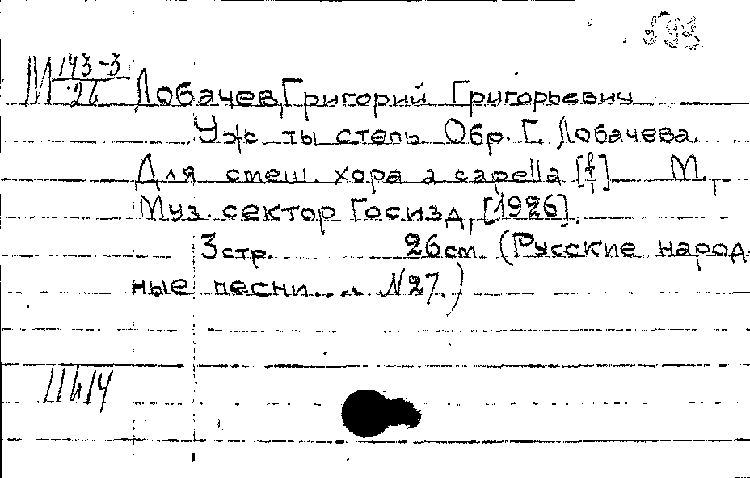 М 143-3/26 Лобачев, Григорий Григорьевич
Уж ты степь Обр. Г. Лобачева.
Для смеш. хора a capella [f] М.,
Муз. сектор Госизд, [1926].
3 стр. 26 см (Русские народ-
ные песни... № 27.)